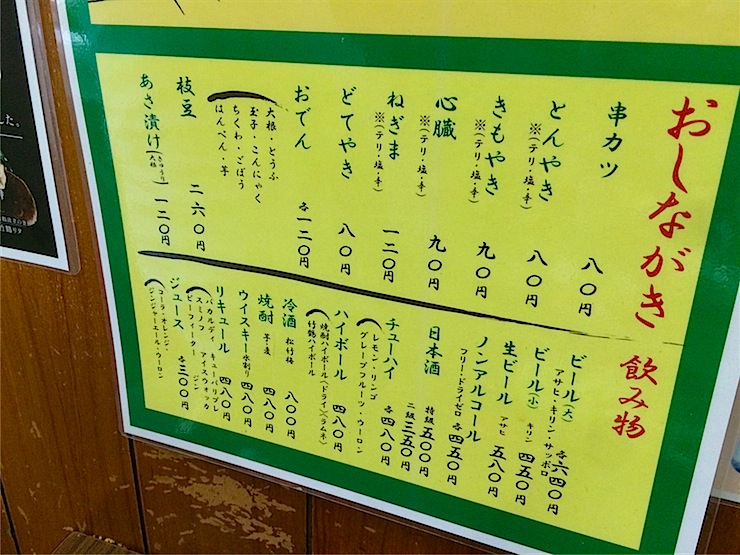 おしながき
串カツ 八〇円
とんやき 八〇円
※(テリ・塩・辛)
きもやき 九〇円
※(テリ・塩・辛)
心臓 九〇円
※(テリ・塩・辛)
ねぎま 一二〇円
※(テリ・塩・辛)
どてやき 八〇円
おでん 各一二〇円
大根・とうふ
玉子・こんにゃく
ちくわ・ごぼう
はんぺん・芋
枝豆 二六〇円
あさ漬け(きゅうり 大根) 一二〇円
飲み物
ビール(大) 各六四〇円
アサヒ・キリン・サッポロ
ビール(小) キリン 四五〇円
生ビール アサヒ 五八〇円
ノンアルコール
フリー・ドライゼロ 各四五〇円
日本酒
特級 五〇〇円
二級 三五〇円
チューハイ 各四八〇円
レモン・リンゴ
グレープフルーツ・ウーロン
ハイボール 四八〇円
焼酎ハイボール(ドライ)(ラムネ)
竹鶴ハイボール
冷酒 松竹梅 八〇〇円
焼酎 芋・麦 四八〇円
ウイスキー 水割り 四八〇円
リキュール 四八〇円
バカルディ キューバリブレ
スミノフ アイスウォッカ
ビーフィーター ジン
ジュース 各三〇〇円
コーラ・オレンジ
ジンジャーエール・ウーロン
した。